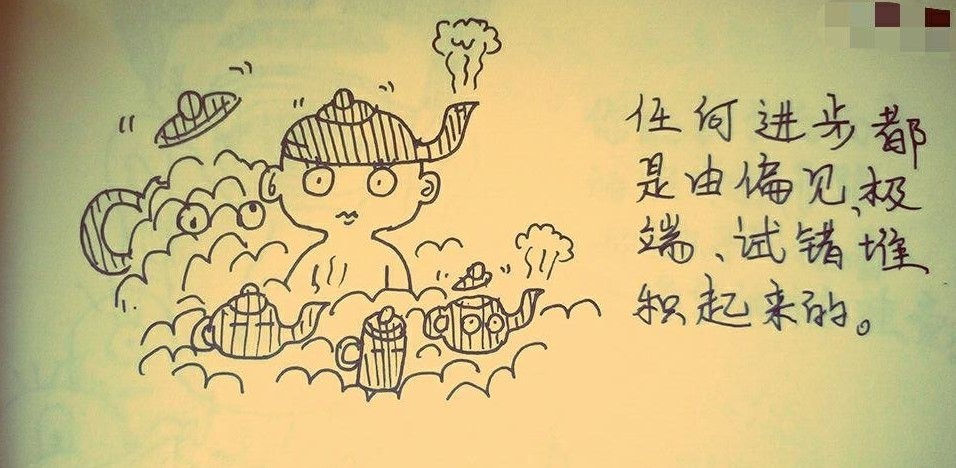 任何进步都
是由偏见、极
端、试错堆
积起来的。